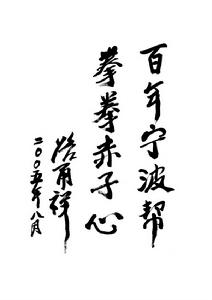 百年宁波帮
拳拳赤子心
路甬祥
二〇〇五年八月